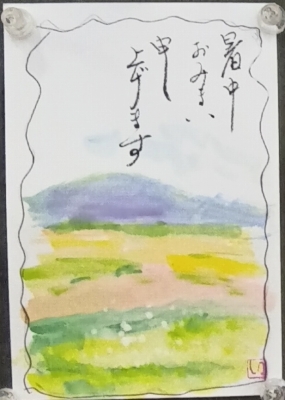 暑中
おみまい
申し
上げます